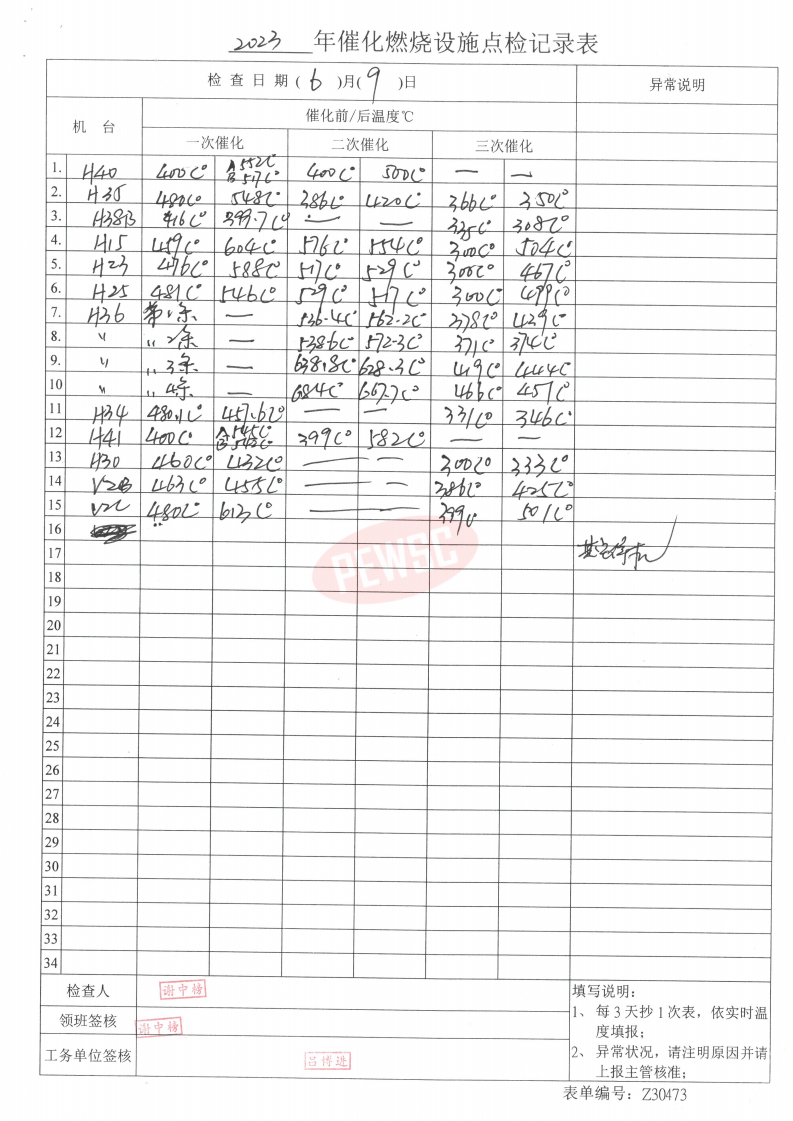 2023 年催化燃烧设施点检记录表
检查日期(6)月(9)日 异常说明
机 台 催化前/后温度℃
一次催化 二次催化 三次催化
1. H40 400C° A 552C° B 517C° 400C° 500C° — —
2. H35 480C° 548C° 386C° 420C° 366C° 350C°
3. H38B 416C° 399.7C° — — 335C° 308C°
4. H15 459C° 604C° 576C° 554C° 300C° 504C°
5. H23 476C° 588C° 517C° 529C° 300C° 467C°
6. H25 481C° 546C° 529C° 517C° 300C° 499C°
7. H36 第1条 — 536.4C° 562.2C° 378C° 439C°
8. 〃 〃2条 — 538.6C° 572.3C° 371C° 374C°
9. 〃 〃3条 — 638.8C° 628.3C° 419C° 444C°
10 〃 〃4条 — 684C° 667.7C° 466C° 451C°
11 H34 480.1C° 457.6C° — — 331C° 346C°
12 H41 400C° A 545C° B 543C° 399C° 582C° — —
13 H30 460C° 432C° — — 300C° 333C°
14 V2B 463C° 455C° — — 386C° 425C°
15 V2C 480C° 613C° — — 399C° 501C°
16
17 其它停机
18
19
20
21
22
23
24
25
26
27
28
29
30
31
32
33
34
PEWSC
检查人 谢中榜
领班签核 谢中榜
工务单位签核 吕博进
填写说明：
1、每3天抄1次表，依实时温
度填报；
2、异常状况，请注明原因并请
上报主管核准；
表单编号：Z30473